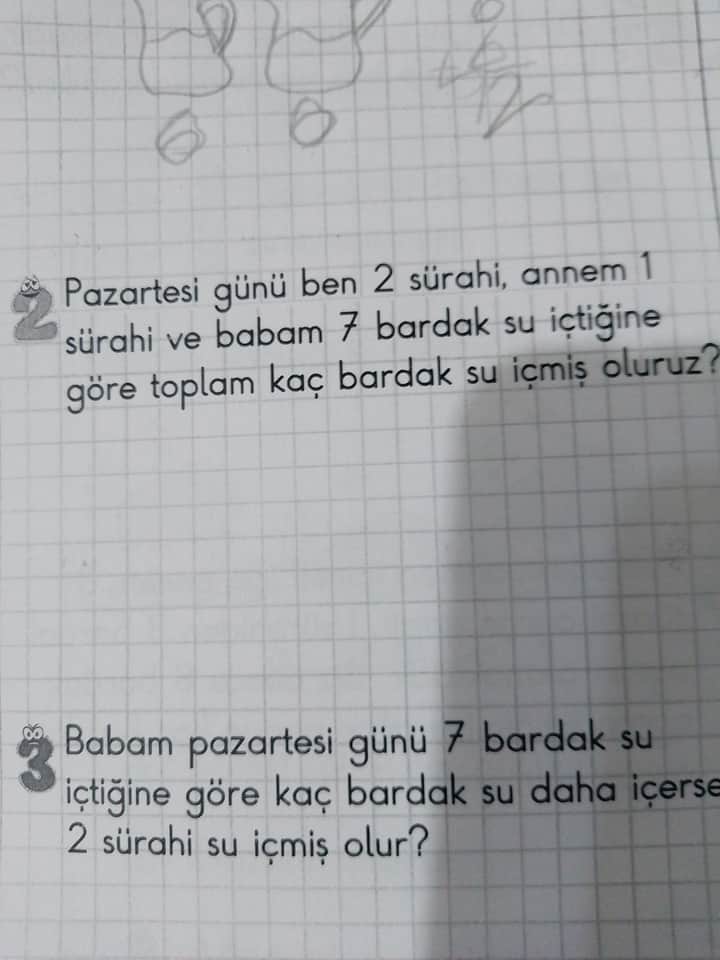 6 6
6
6
+
12
2 Pazartesi günü ben 2 sürahi, annem 1
sürahi ve babam 7 bardak su içtiğine
göre toplam kaç bardak su içmiş oluruz?
3 Babam pazartesi günü 7 bardak su
içtiğine göre kaç bardak su daha içerse
2 sürahi su içmiş olur?